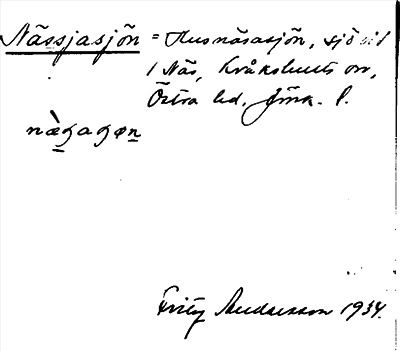 Nässjasjön = Husnäsasjön, sjö vid
1 Näs, Kråkshults sn,
Östra hd, Jönk. l.
næ̀gagøn
Fritz Andersson 1934.